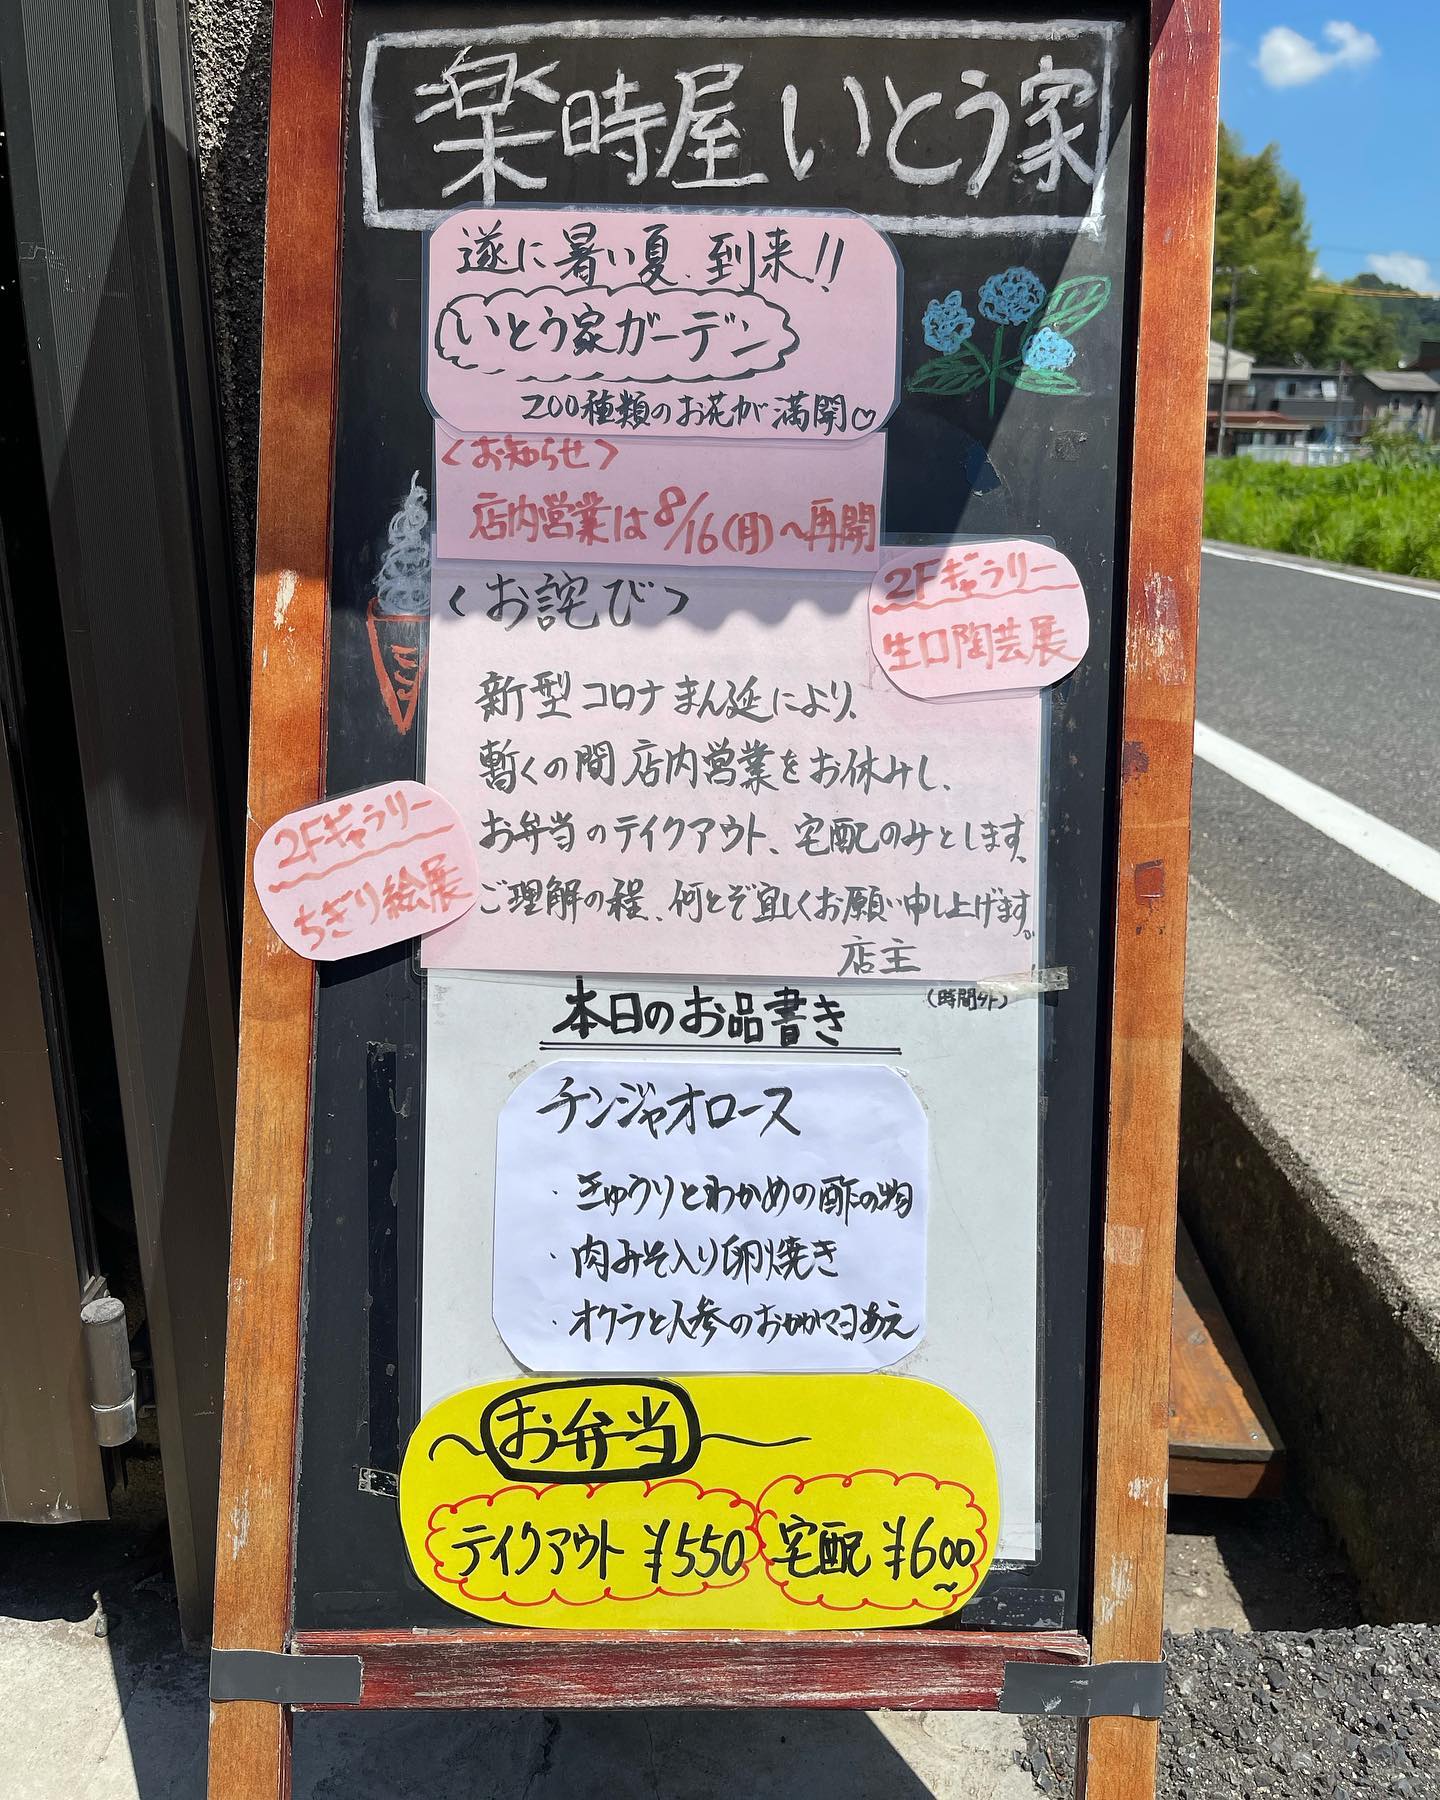 楽時屋 いとう家
遂に暑い夏、到来!!
いとう家ガーデン
200種類のお花が満開♡
<お知らせ>
店内営業は8/16(月)~再開
2Fギャラリー
生口陶芸展
<お詫び>
新型コロナまん延により、
暫くの間店内営業をお休みし、
お弁当のテイクアウト、宅配のみとします。
ご理解の程、何とぞ宜しくお願い申し上げます。
店主
2Fギャラリー
ちぎり絵展
本日のお品書き
(時間外)
チンジャオロース
・きゅうりとわかめの酢の物
・肉みそ入り卵焼き
・オクラと人参のおかかマヨあえ
~お弁当~
テイクアウト ¥550
宅配 ¥600~